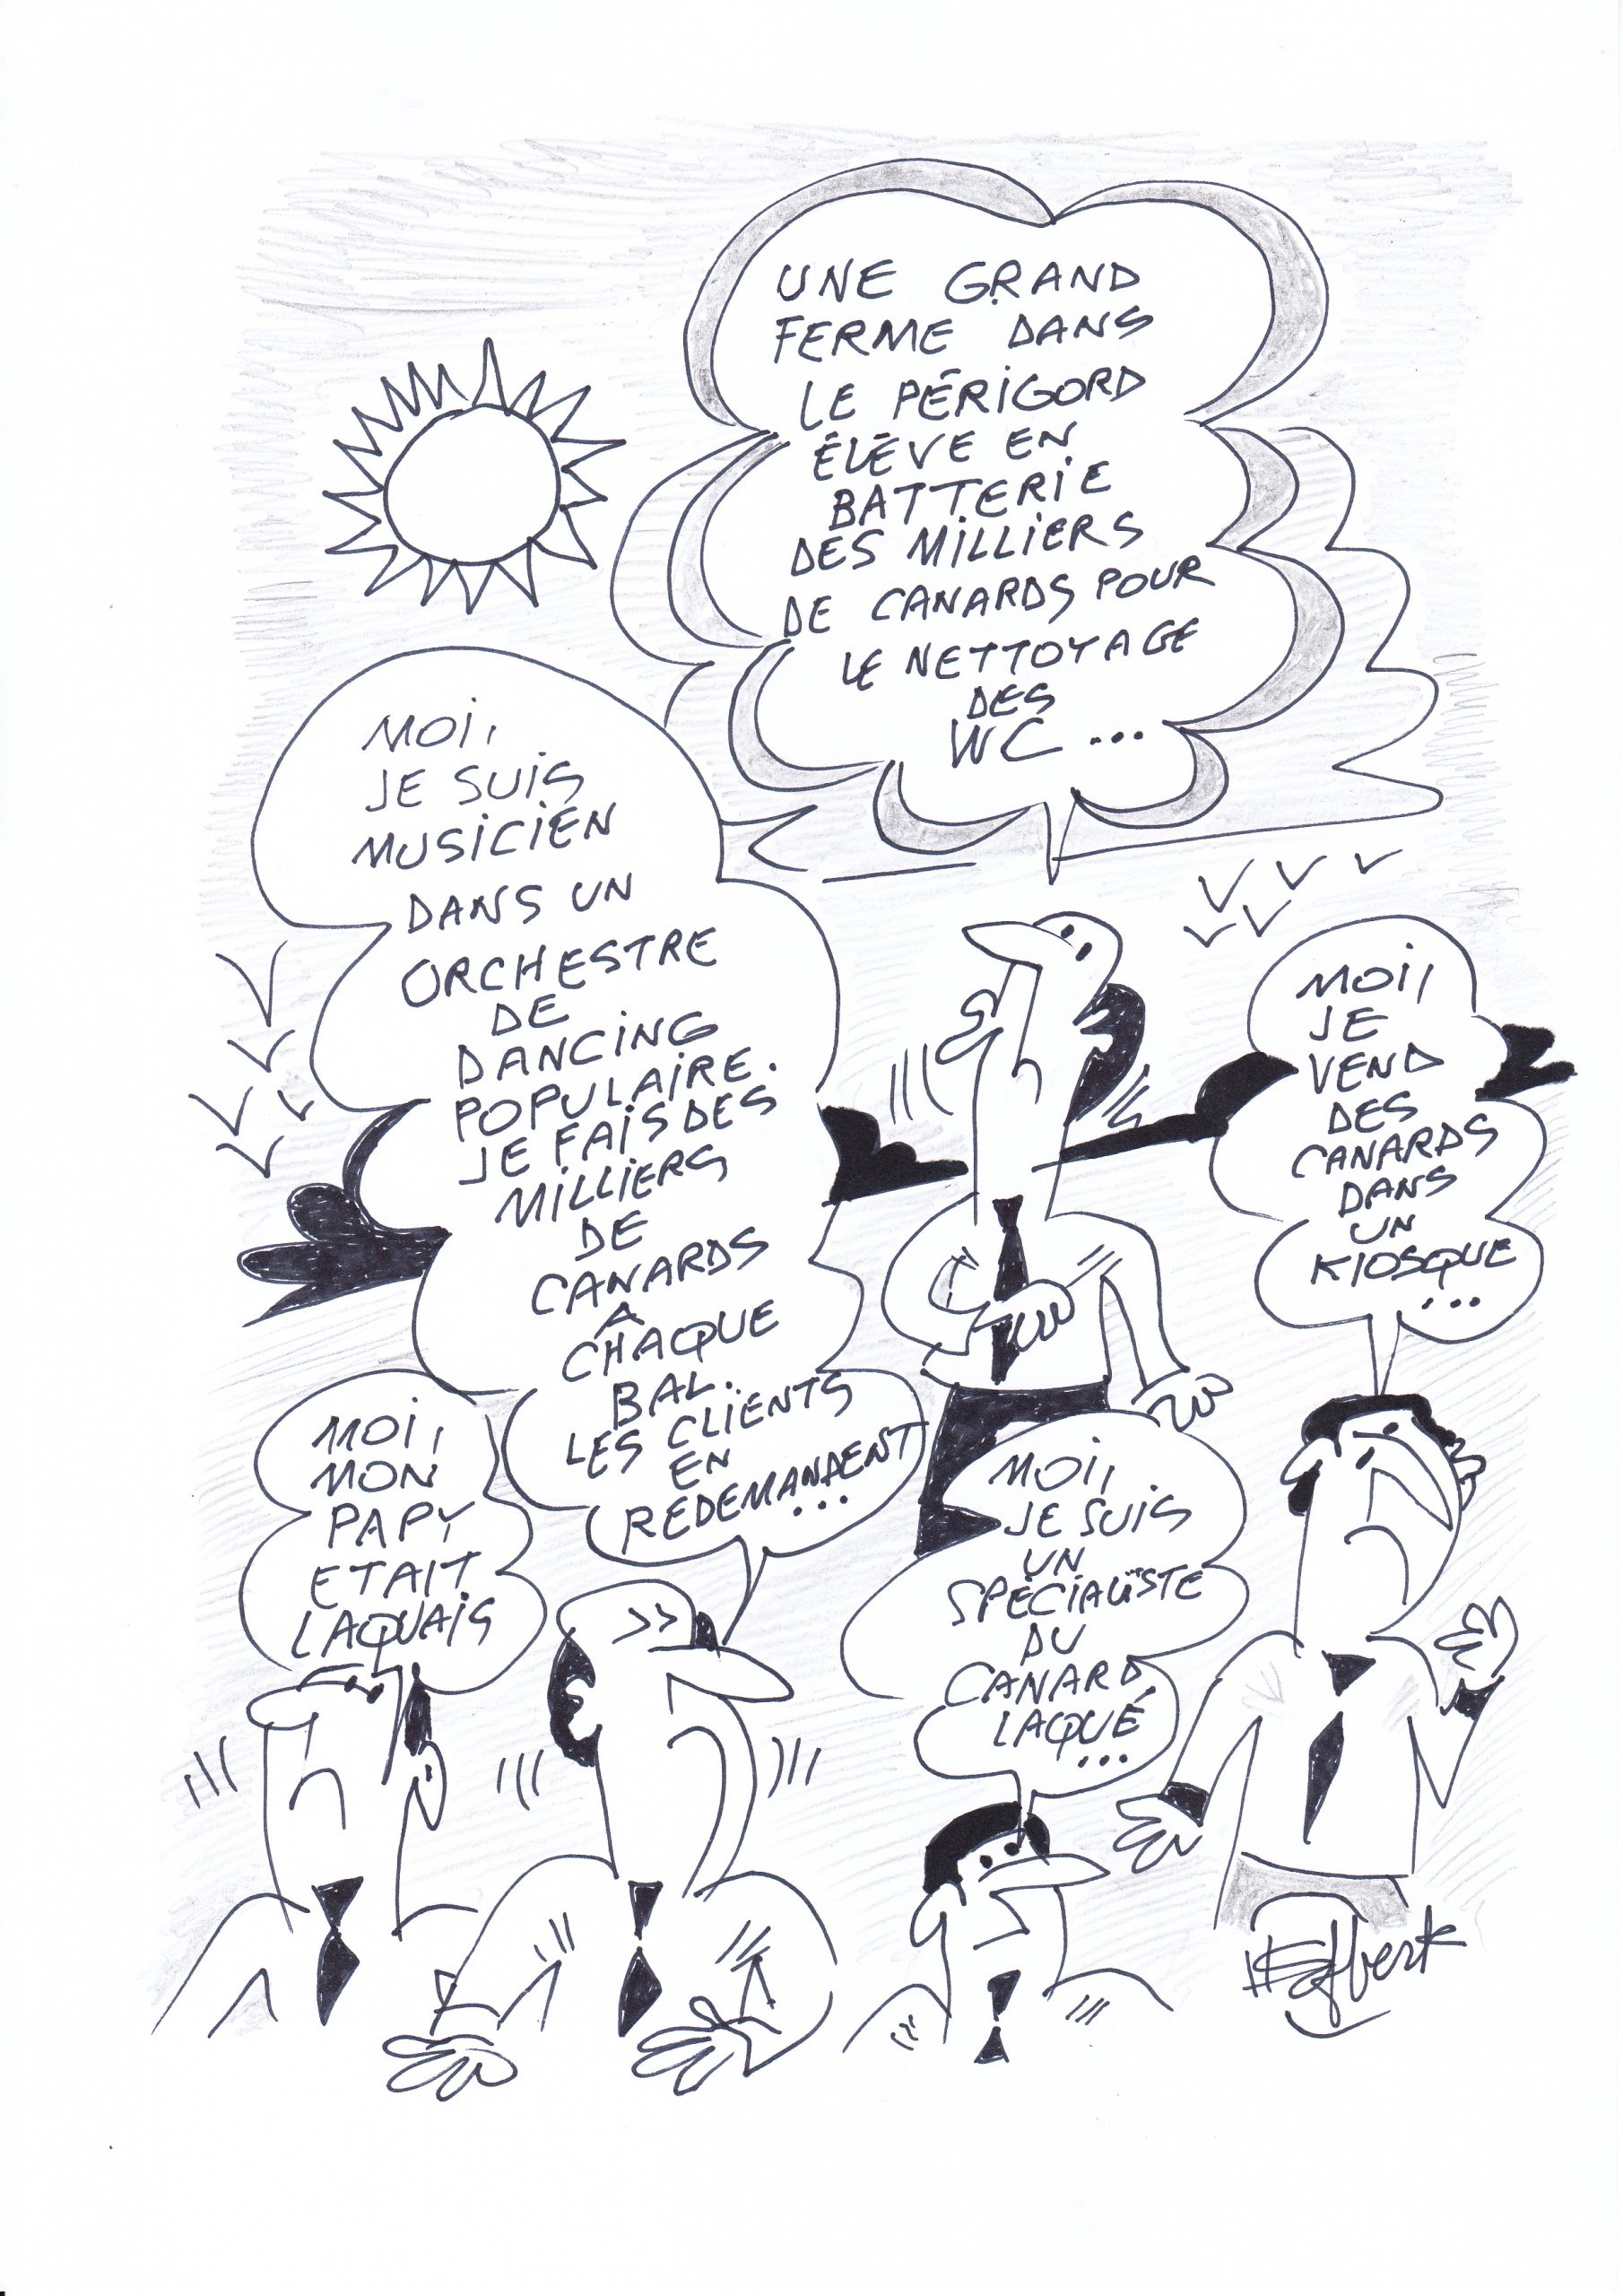 UNE GRAND
FERME DANS
LE PÉRIGORD
ÉLÉVE EN
BATTERIE
DES MILLIERS
DE CANARDS POUR
LE NETTOYAGE
DES
WC ...
MOI,
JE SUIS
MUSICIEN
DANS UN
ORCHESTRE
DE
DANCING
POPULAIRE.
JE FAIS DES
MILLIERS
DE
CANARDS
A
CHAQUE
BAL.
LES CLIENTS
EN
REDEMANDENT
...
MOI,
JE
VEND
DES
CANARDS
DANS
UN
KIOSQUE
...
MOI,
MON
PAPY
ETAIT
LAQUAIS
MOI,
JE SUIS
UN
SPÉCIALISTE
DU
CANARD
LAQUÉ
...